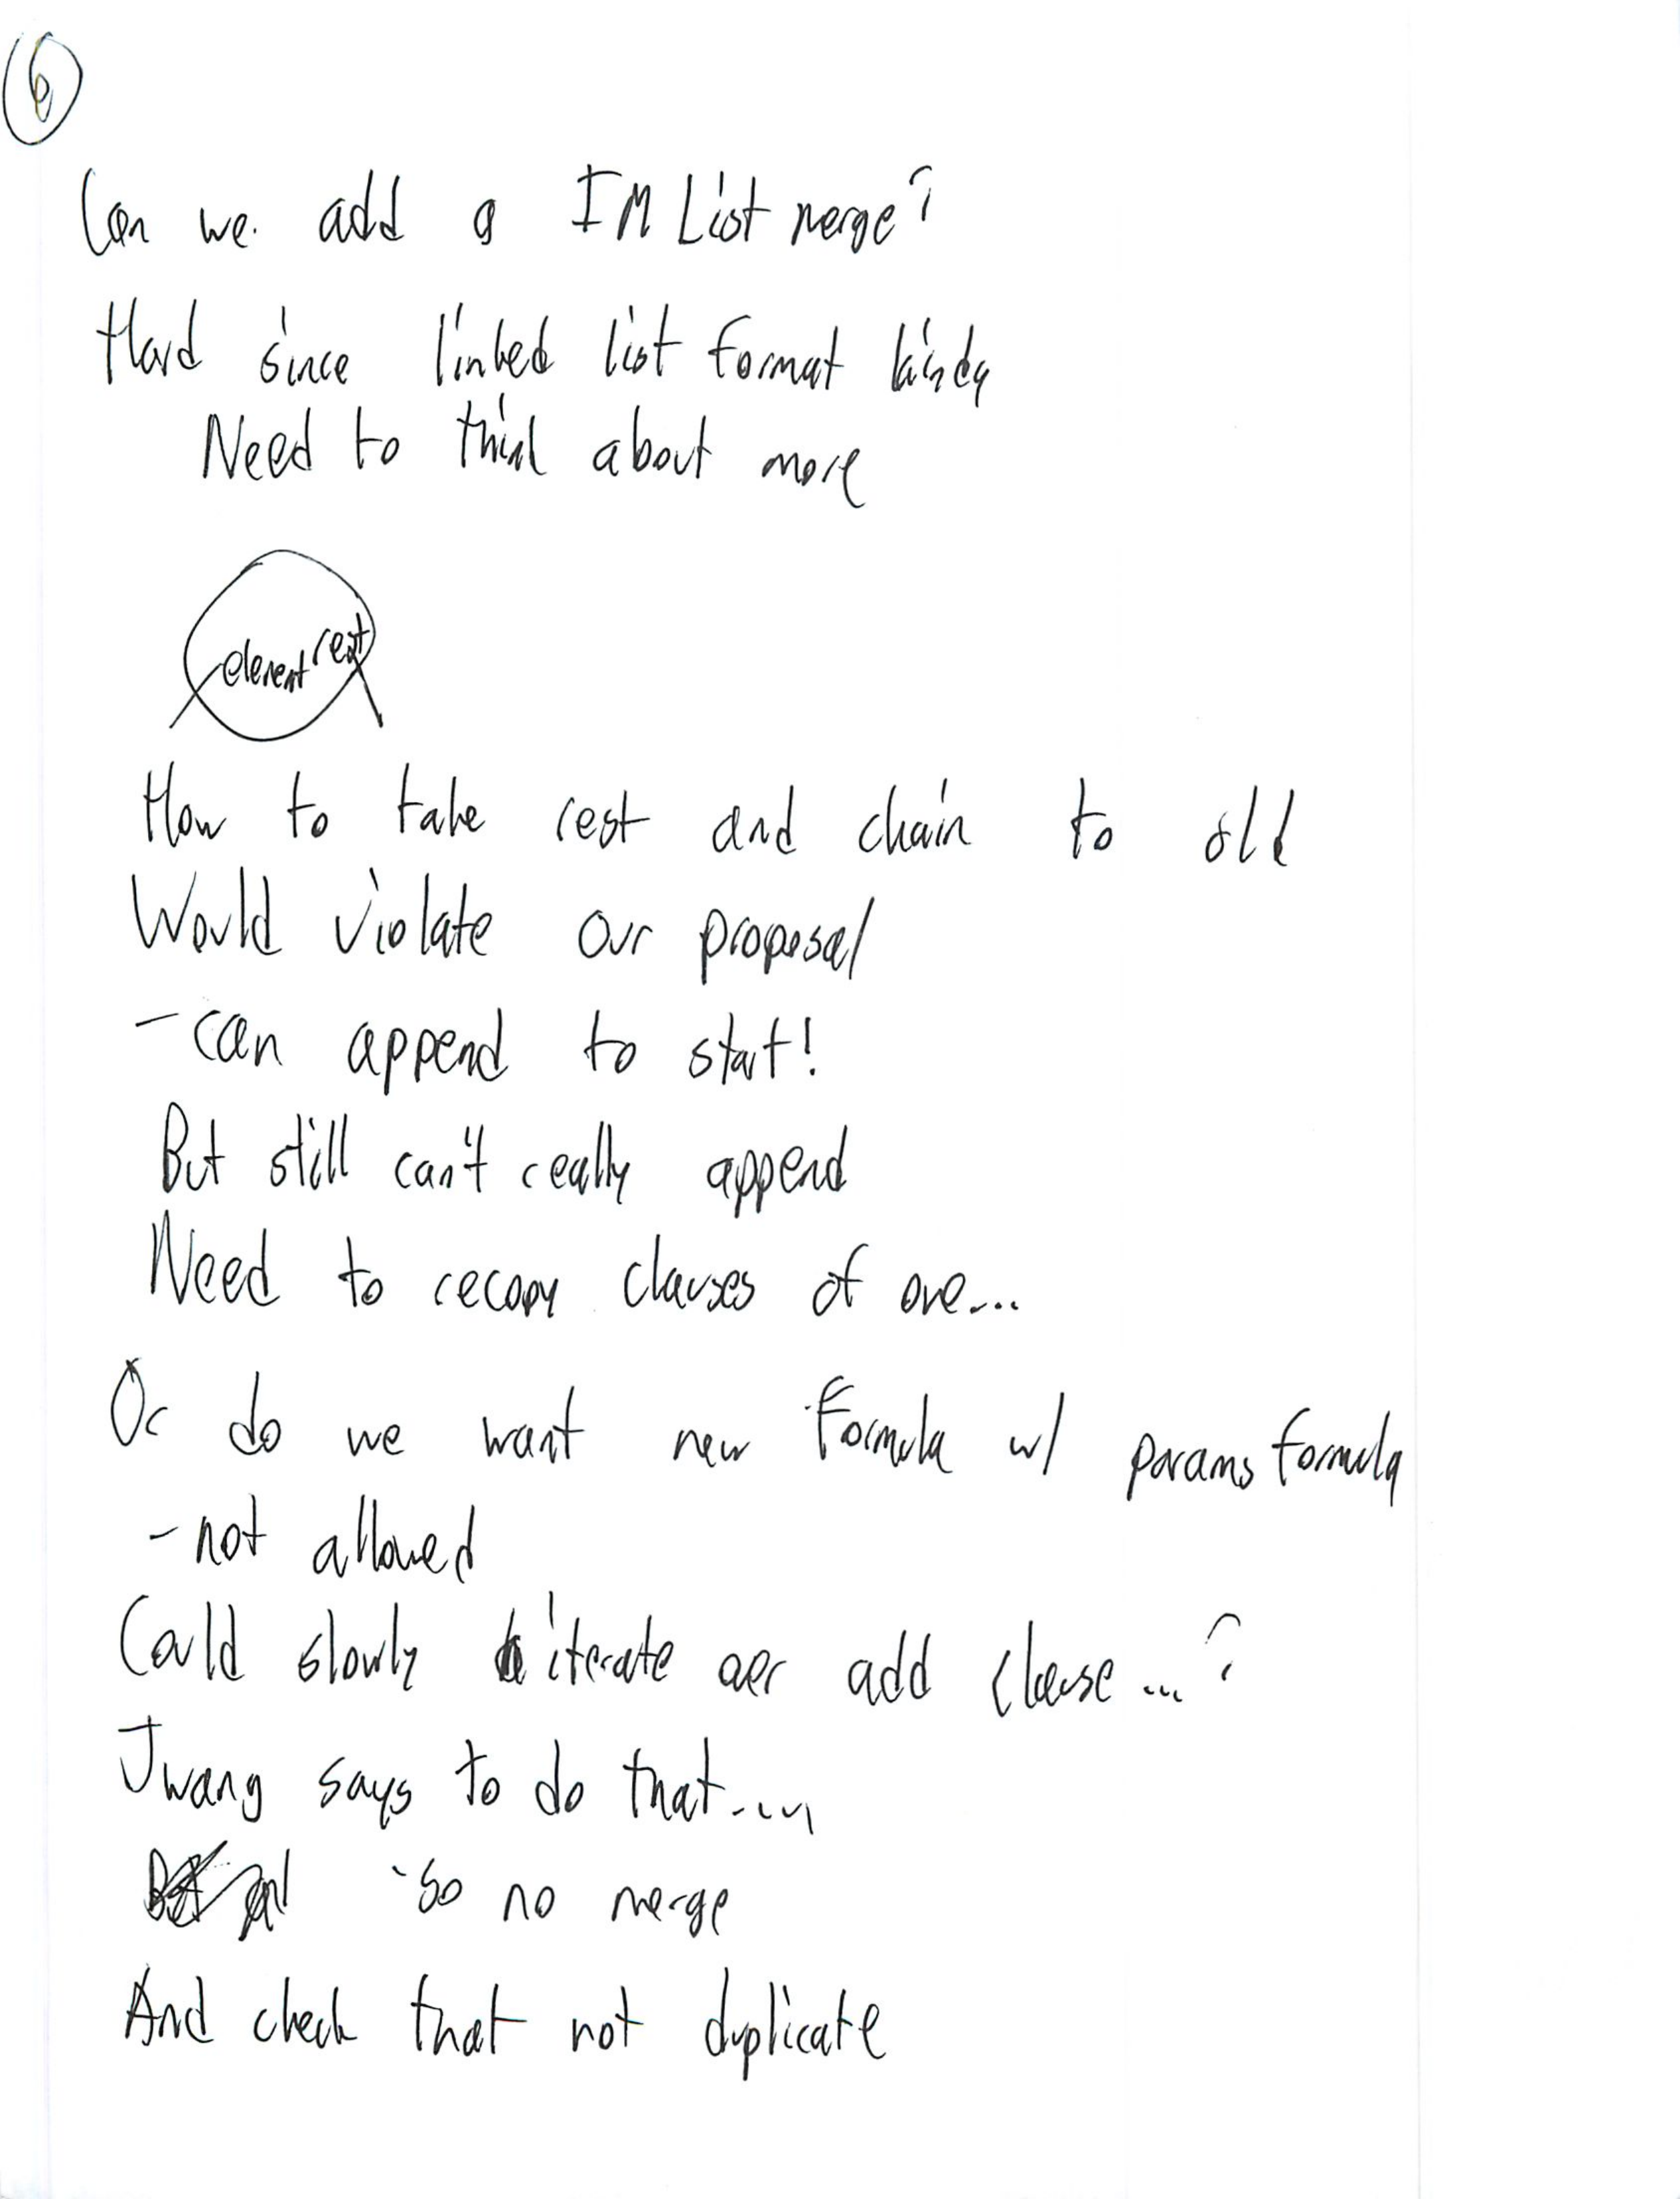 6
Can we add a IM List merge?
Hard since linked list format kinda
Need to think about more
element rest
How to take rest and chain to old
Would violate our proposal
- can append to start!
But still can't really append
Need to recopy clauses of one...
Or do we want new Formula w/ params formula
- not allowed
Could slowly iterate over add clause...?
Jwang says to do that....
- So no merge
And check that not duplicate